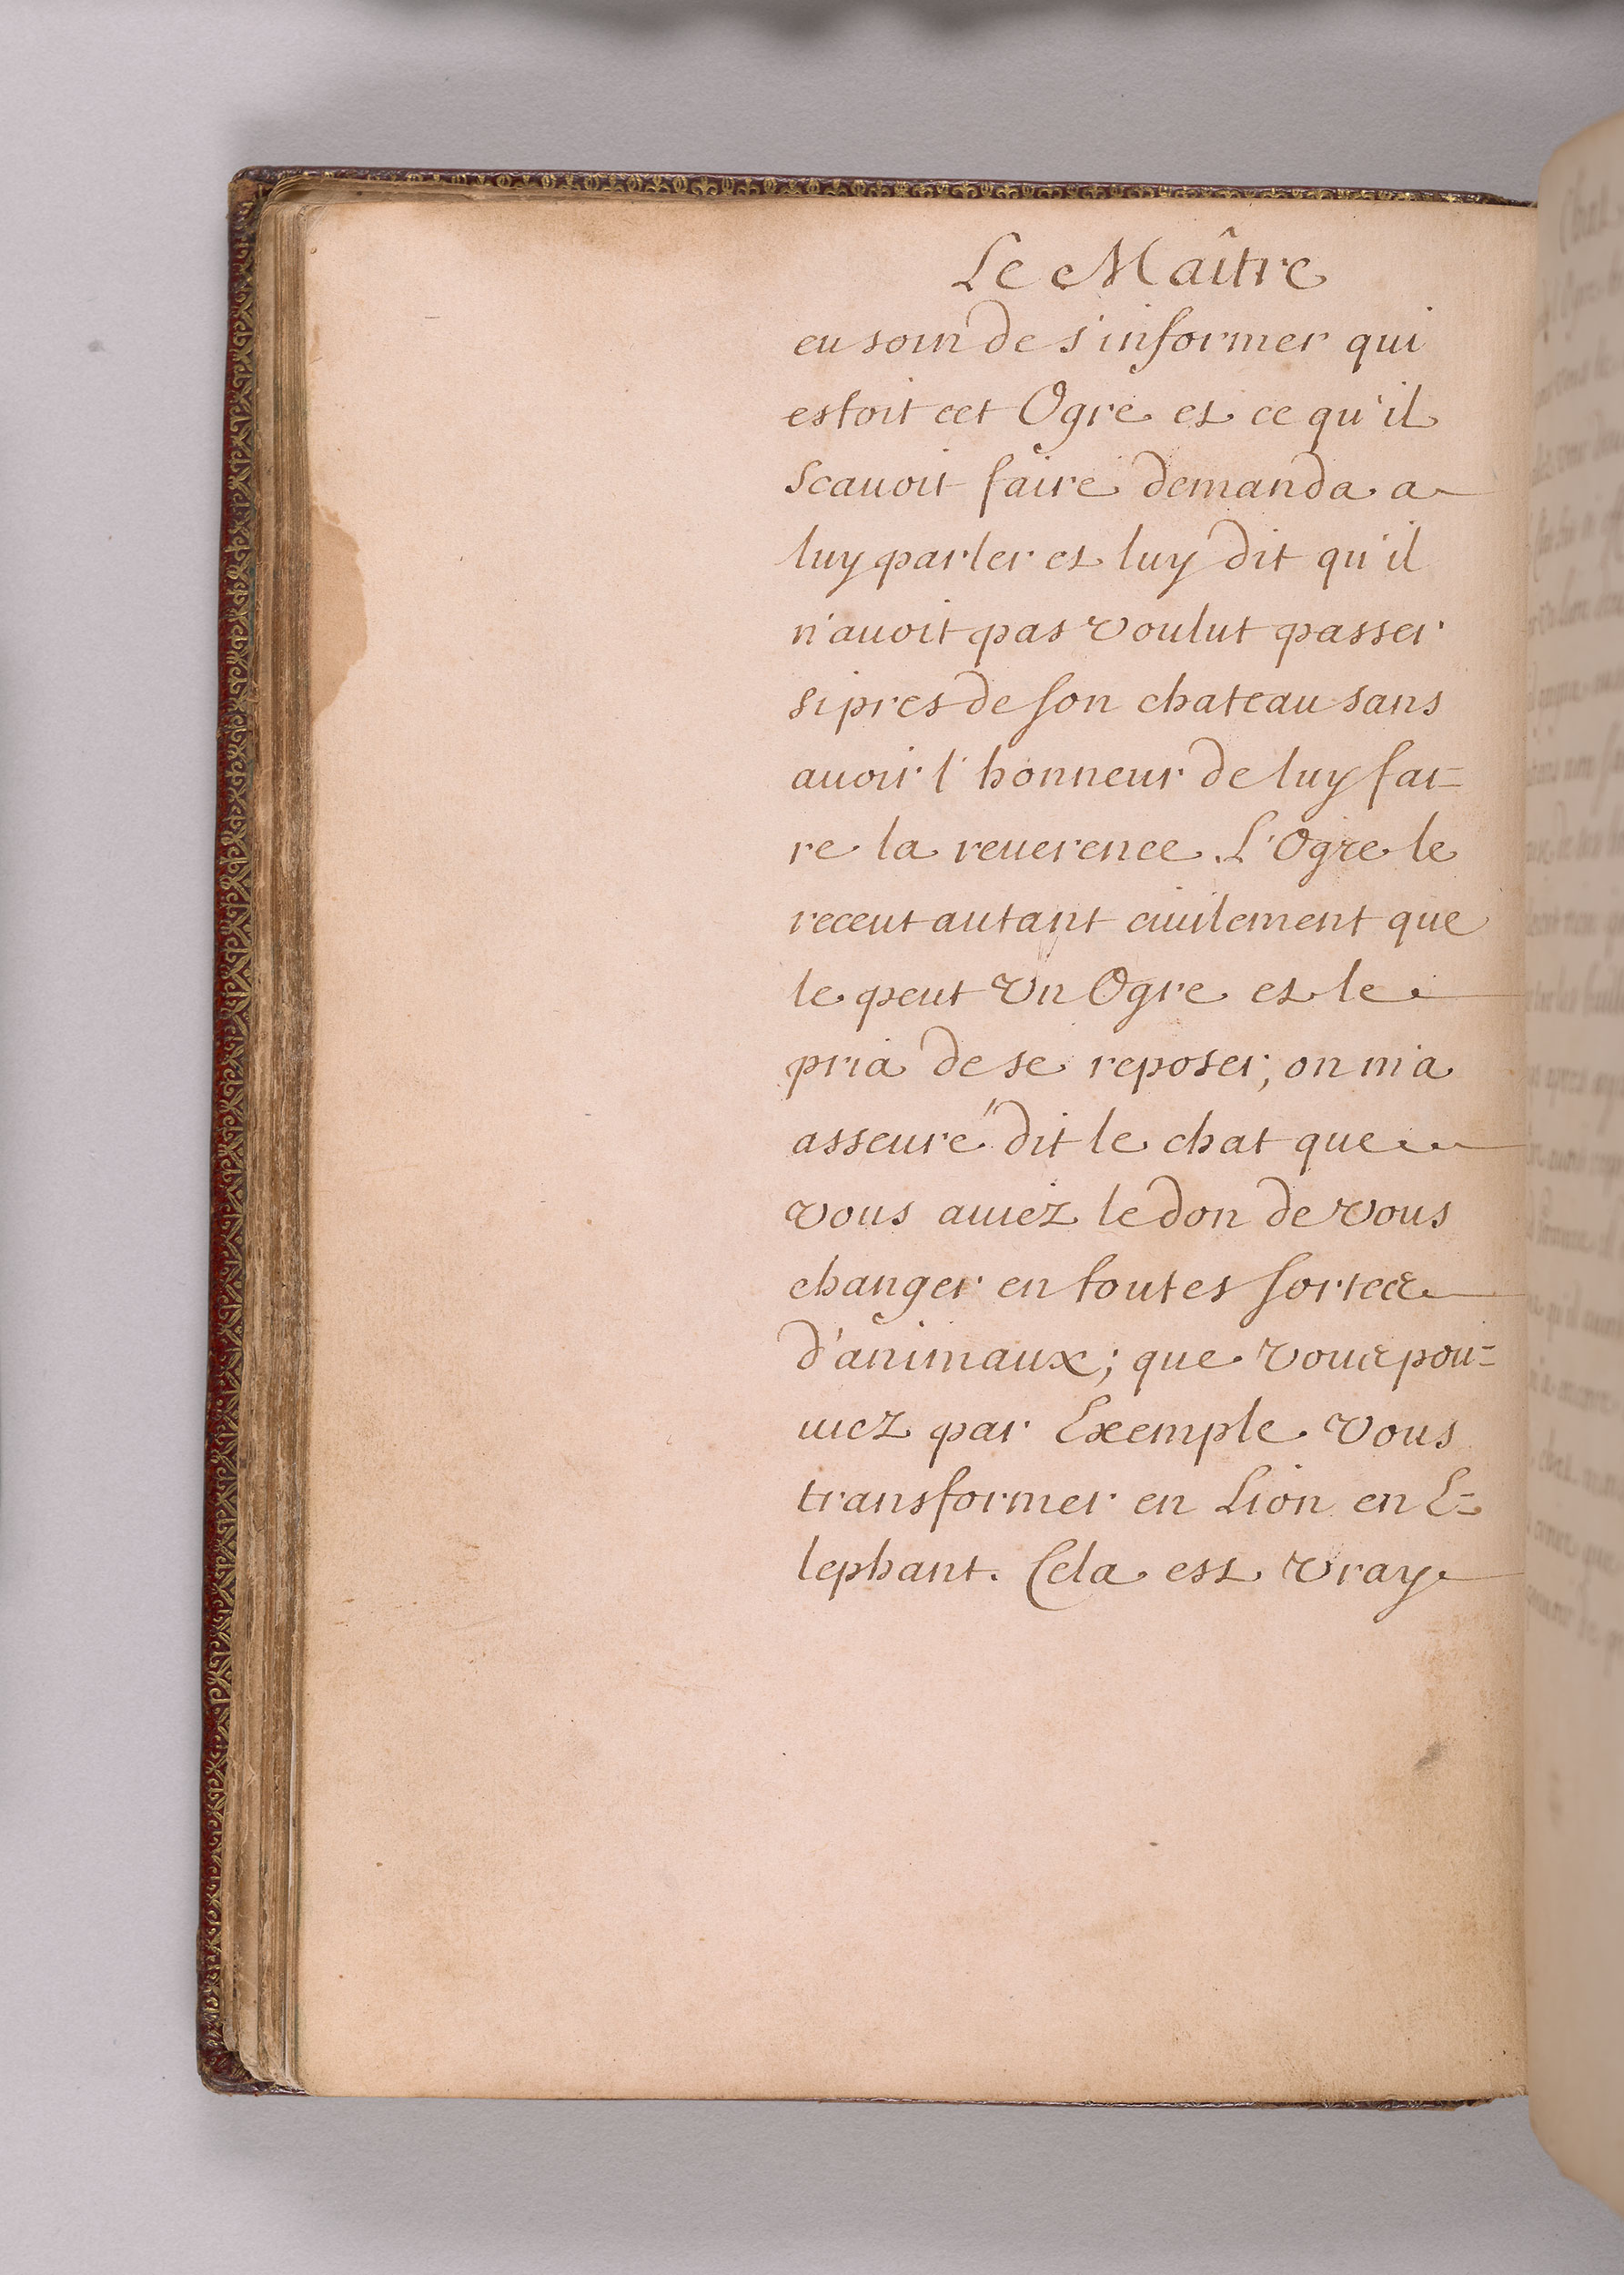 Le Maître
eu soin de s'informer qui
estoit cet Ogre et ce qu'il
scauoit faire demanda a
luy parler et luy dit qu'il
n'auoit pas voulut passer
si pres de son chateau sans
auoir l'honneur de luy fai=
re la reuerence. L'Ogre le
receut autant ciuilement que
le peut vn Ogre et le
pria de se reposer; on m'a
asseuré dit le chat que
vous auiez le don de vous
changer en toutes sortes
d'animaux; que vous pou=
uiez par Exemple vous
transformer en Lion en E=
lephant. Cela est vray